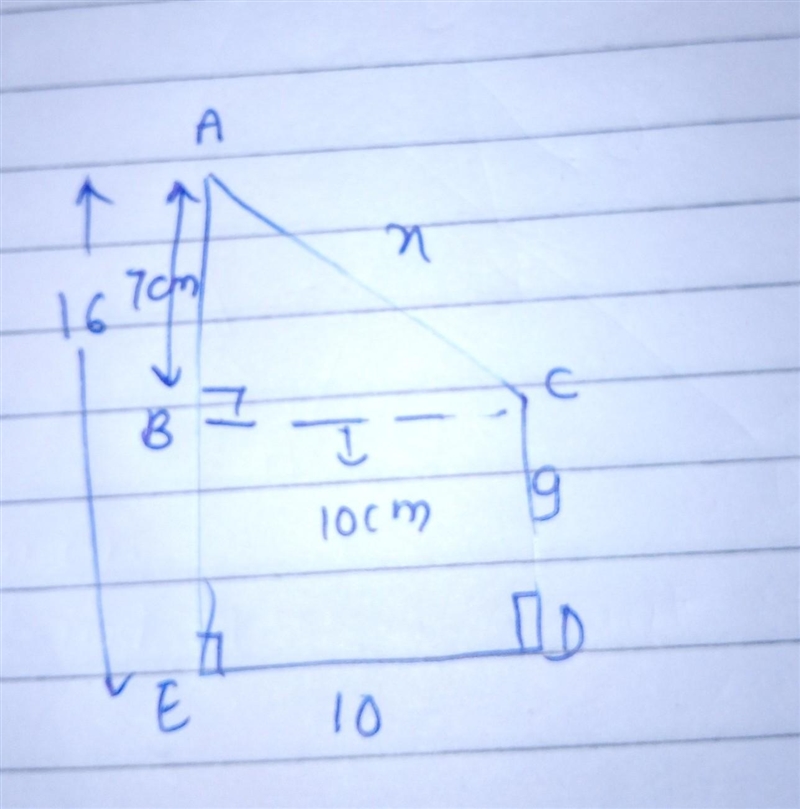 A
n
7cm
16
C
B
9
10cm
D
E
10